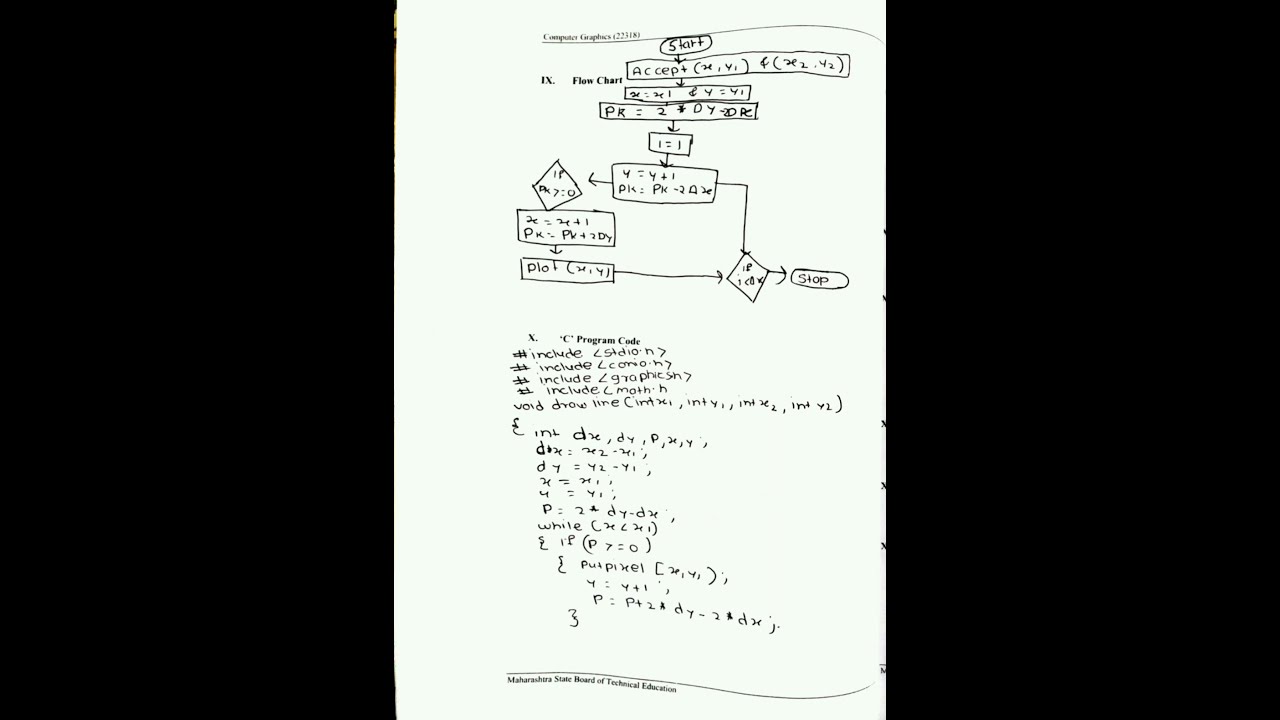 Computer Graphics (22318)
Start
Accept (x1,y1) & (x2,y2)
IX. Flow Chart
x=x1 & y=y1
PK = 2 * DY-DX
i=1
if
PK>=0
y = y+1
PK= PK-2Δx
x = x+1
PK= PK+2DY
Plot (x,y)
if
i<Δx
Stop
X. 'C' Program Code
#include <stdio.h>
# include <conio.h>
# include <graphics.h>
# include <math.h
void draw line (int x1, int y1, int x2, int y2)
{ int dx, dy, P, x, y;
dx= x2-x1;
dy = y2-y1;
x = x1;
y = y1;
P = 2* dy-dx;
while (x<x1)
{ if (P >=0)
{ putpixel [x,y,);
y = y+1;
P = P+2* dy-2*dx;
}
Maharashtra State Board of Technical Education